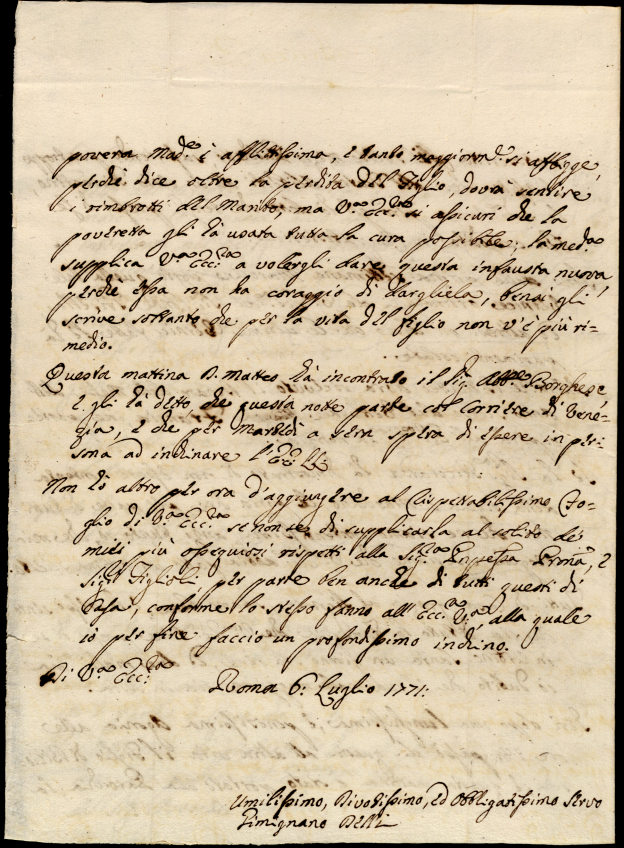 povera Mad.e è afflittissima, e tanto maggiorm.e si affligge,
perchè dice oltre la perdita del Figlio, dovrà sentire
i rimbrotti del Marito; ma V.a Ecc.za si assicuri che la
poveretta gli hà usata tutta la cura possibile; la med.a
supplica V.a Ecc.za a volergli dare questa infausta nuova
perchè essa non ha coraggio di dargliela, bensì gli
scrive soltanto che per la vita del figlio non v'è più ri-
medio.
Questa mattina D. Matteo hà incontrato il Sig. Abb.e Borghese
e gli hà detto, che questa notte parte col Corriere di Vene-
zia, e che per Martedì a sera spera di essere in per-
sona ad inchinare l'Ecc.
Non hò altro per ora d'aggiungere al rispettabilissimo Fo-
glio di V.a Ecc.za se non se di supplicarla al solito de
miei più ossequiosi rispetti alla Sig.ra Ppessa Prma, e
Sig.ri Figlioli per parte ben anche di tutti questi di
Casa, conforme lo stesso fanno all'Ecc.a V.a, alla quale
io per fine faccio un profondissimo inchino.
Di V.a Ecc.za
Roma 6: Luglio 1771:
Umilissimo, Divotissimo, ed Obbligatissimo Servo
Gimignano Belli